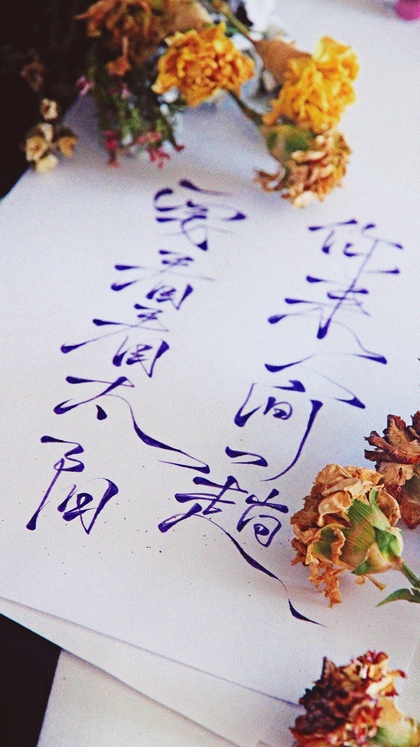 你来人间一趟
要看看太阳